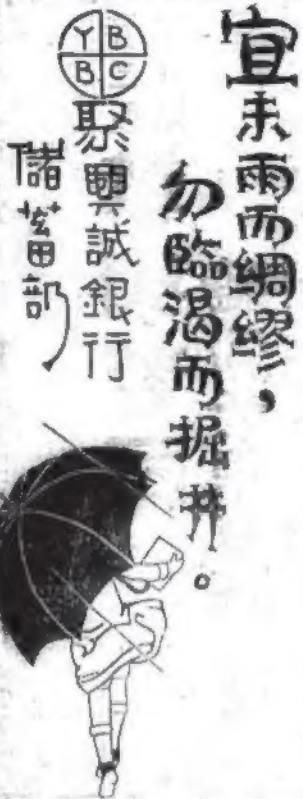 宜未雨而綢繆，
勿臨渴而掘井。
Y B
B C
聚興誠銀行
儲蓄部